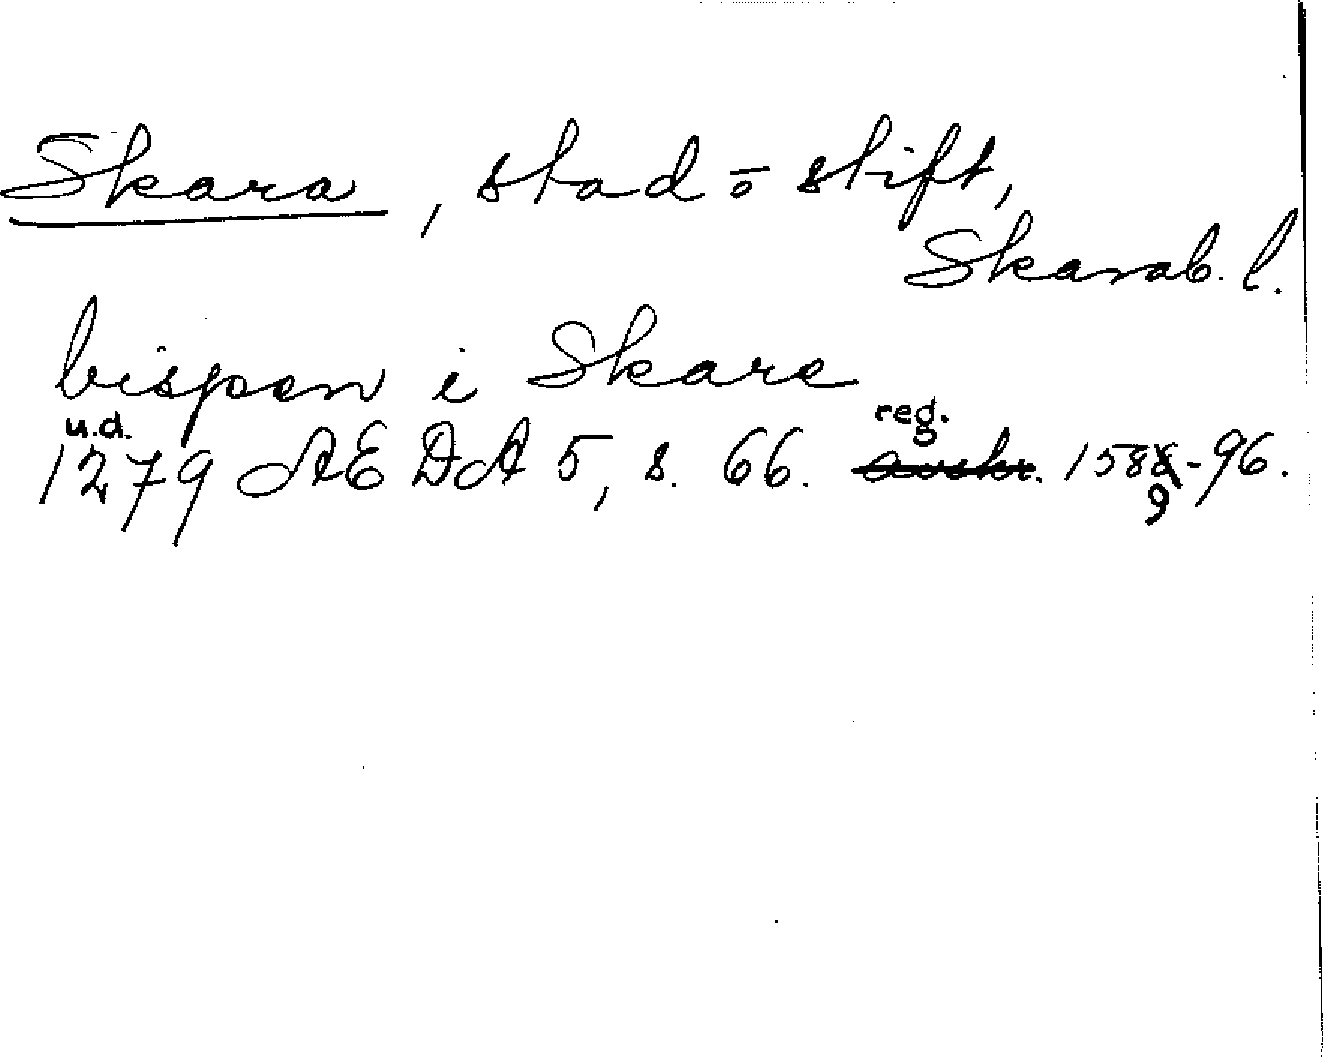 Skara, stad o stift,
Skarab. l.
bispen i Skare
u.d. reg.
1279 AE DA 5, s. 66. avskr. 1588-96.
9